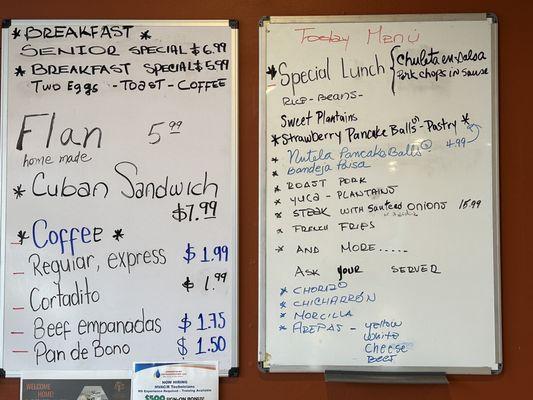 * BREAKFAST *
SENIOR SPECIAL $6.99
* BREAKFAST SPECIAL $5.99
TWO EggS - TOAST - COFFEE
Flan 5.99
home made
* Cuban Sandwich
$7.99
* Coffee *
- Regular, express $1.99
- Cortadito $1.99
- Beef empanadas $1.75
- Pan de Bono $1.50
WELCOME HOME!
NOW HIRING
HVAC/R Technicians
$500 SIGN-ON BONUS!
Today Menú
* Special Lunch { Chuleta en Salsa
Pork chops in sause
RICE - BEANS -
Sweet Plantains
* Strawberry Pancake Balls - Pastry *
* Nutela Pancake Balls 4.99
* bandeja Paisa
* ROAST PORK
* YUCA - PLANTAINS
* STEAK WITH sauteed ONIONS 15.99
* FRENCH FRIES
* AND MORE.....
ASK YOUR SERVER
* CHORIZO
* CHICHARRÓN
* MORCILLA
* AREPAS - yellow
white
cheese
BEEF